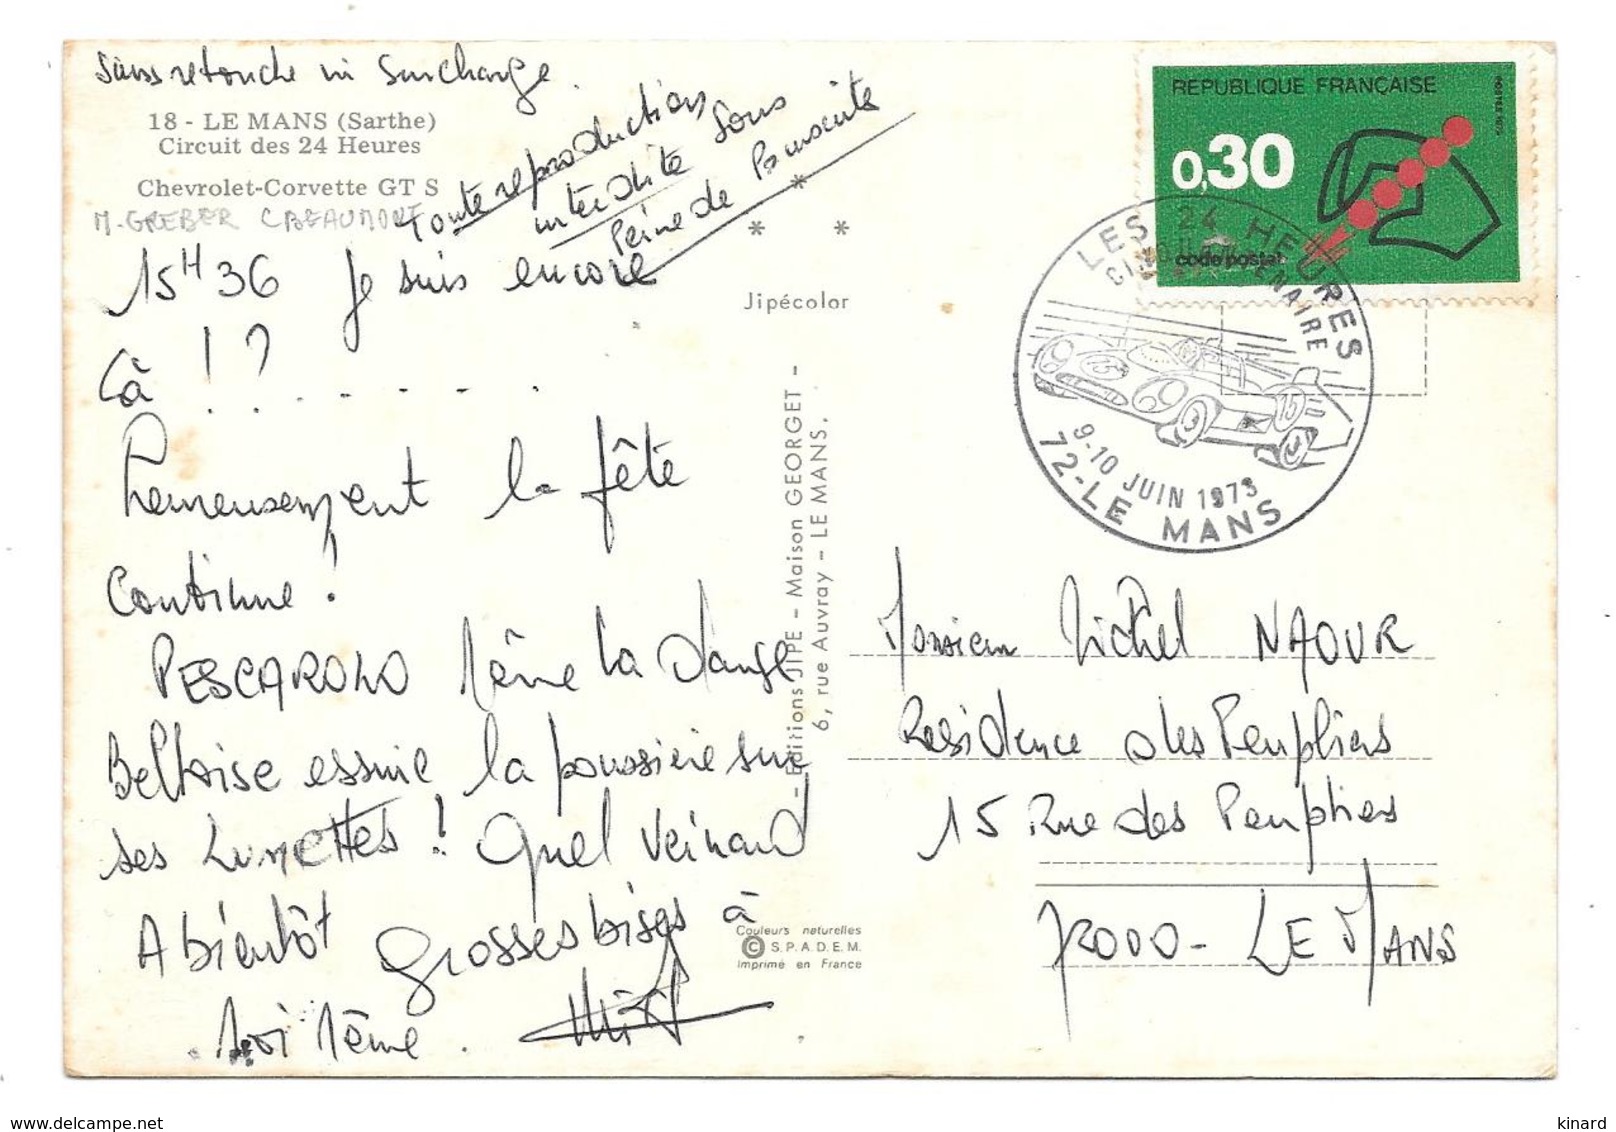 Sans retouche ni Surcharge
18 - LE MANS (Sarthe)
Circuit des 24 Heures
Chevrolet-Corvette GT S
M. GREBER C BEAUMONT
Toute reproduction
interdite sous
Peine de Poursuite
15H36 Je suis encore
Là !?
heureusement la fête
continue !
PESCAROLO Mène la Danse
Beltoise essuie la poussière sur
ses LuneTTes ! Quel Veinard
A bientôt grosses bises à
Moi Même.
Michel
* * *
Jipécolor
- Editions JIPE - Maison GEORGET -
6, rue Auvray - LE MANS.
Couleurs naturelles
© S.P.A.D.E.M.
Imprimé en France
REPUBLIQUE FRANÇAISE
0,30
code postal
POSTES 1972
LES 24 HEURES
CINQUANTENAIRE
15
15
9-10 JUIN 1973
72-LE MANS
Monsieur Michel NAOUR
Residence des Peupliers
15 Rue des Peupliers
72000 - LE MANS
delcampe.net
kinard